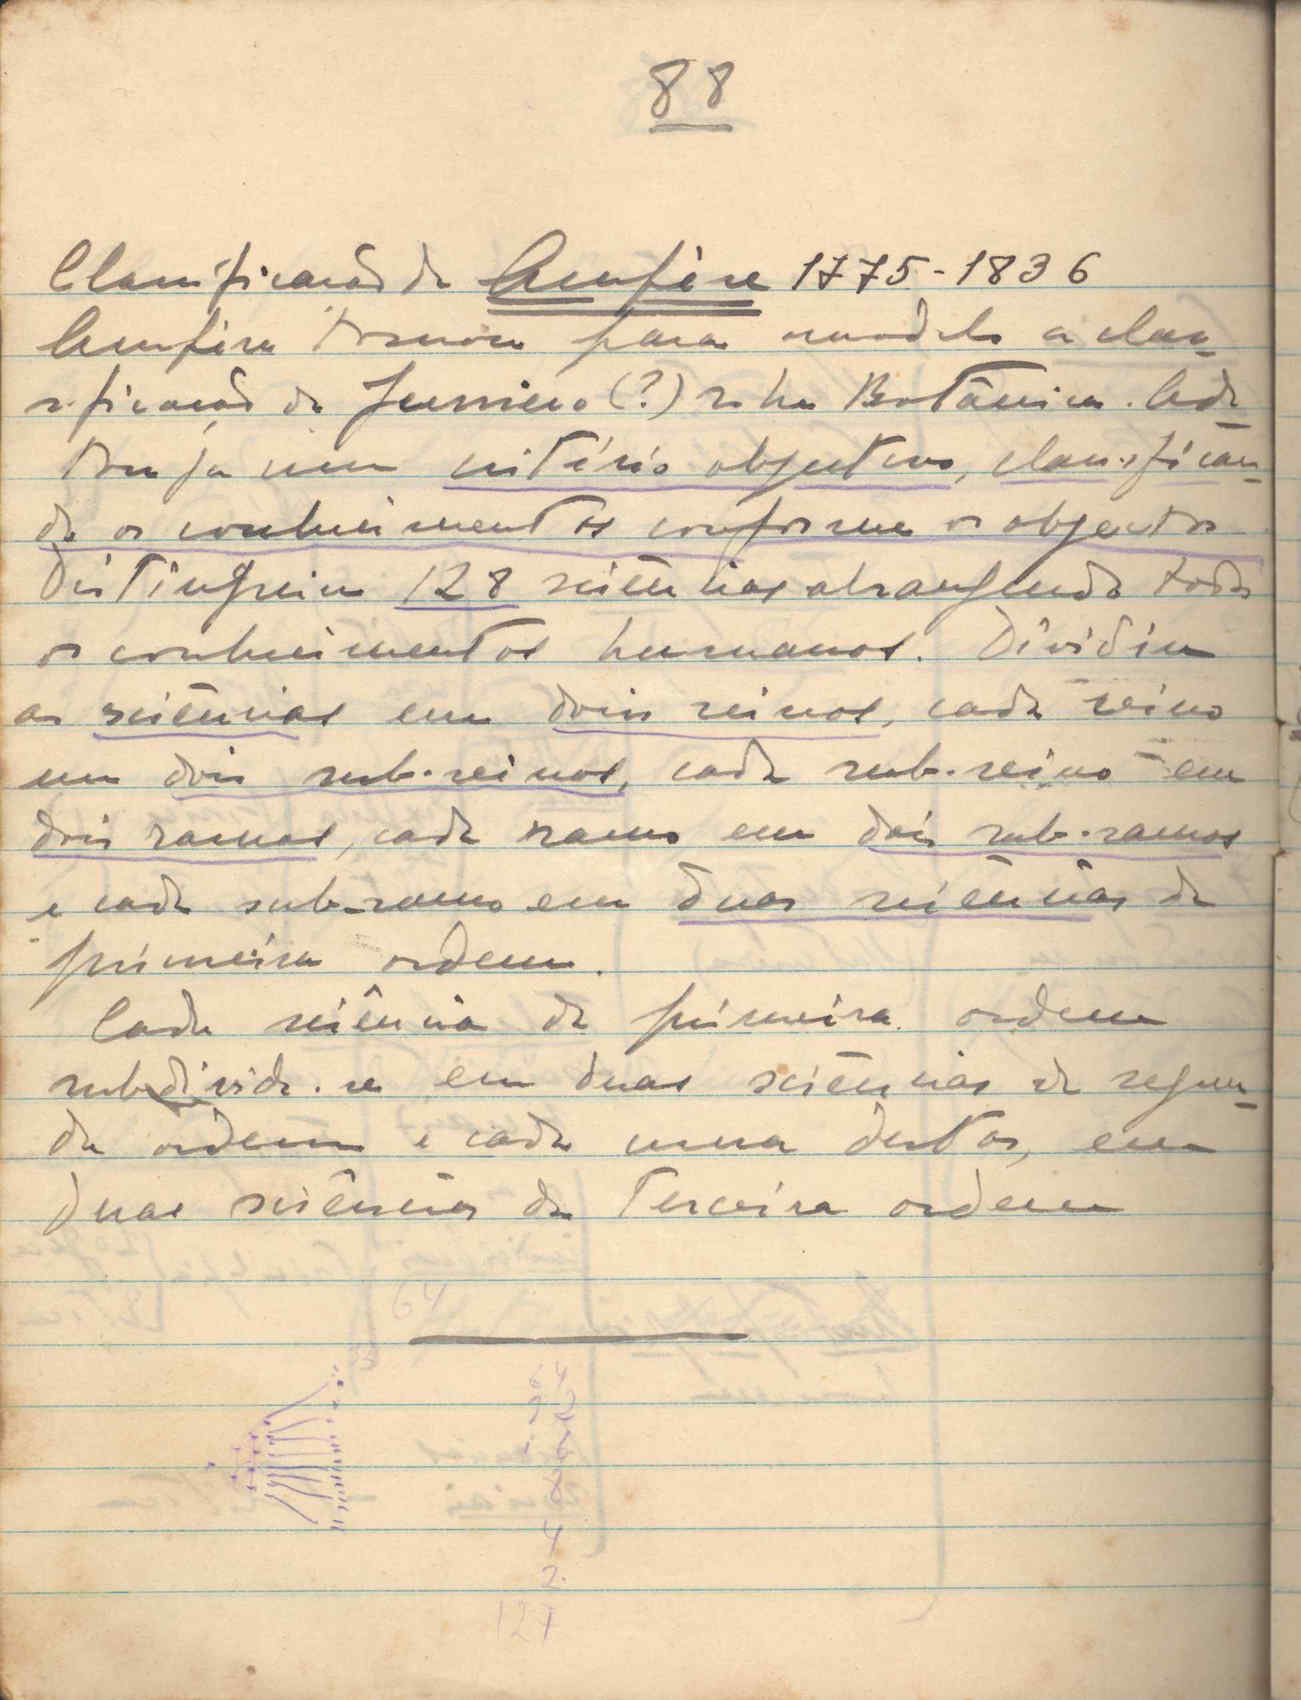 88
Classificação de Ampère 1775-1836
Ampère tomou para modelo a clas-
sificação de Jussieu (?) sobre Botânica. Adop
tou já um critério objectivo, classifican-
do os conhecimentos conforme os objectos
Distinguiu 128 sciências abrangendo todos
os conhecimentos humanos. Dividiu
as sciências em dois reinos, cada reino
em dois sub-reinos, cada sub-reino em
dois ramos, cada ramo em dois sub-ramos
e cada sub-ramo em duas sciências de
primeira ordem.
Cada sciência de primeira ordem
subdivide-se em duas sciências de segun-
da ordem e cada uma destas, em
duas sciências de terceira ordem
64
4
2
127